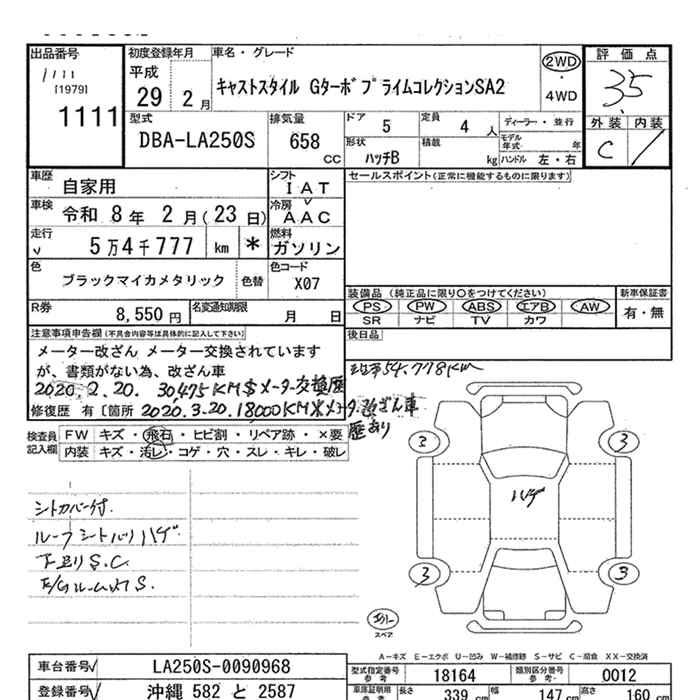 出品番号
1111
[1979]
1111
初度登録年月
平成
29 2月
車名・グレード
キャストスタイル GターボプライムコレクションSA2
2WD
・
4WD
評価点
3.5
外装 内装
C
型式
DBA-LA250S
排気量
658
CC
ドア 5
定員 4 人
ディーラー・並行
モデル年式 年
形状 ハッチB
積載 kg
ハンドル 左・右
車歴 自家用
シフト IAT
車検 令和 8年 2月(23日)
冷房 AAC
走行 5万4千777 km *
燃料 ガソリン
色 ブラックマイカメタリック 色替
色コード X07
R券 8,550円
名変通知期限 月 日
セールスポイント(正常に機能するものに限ります)
装備品(純正品に限り○をつけてください)
PS PW ABS エアB AW
SR ナビ TV カワ
新車保証書
有・無
後日品
注意事項申告欄(不具合内容等は具体的に記入して下さい)
メーター改ざん メーター交換されています
が、書類がない為、改ざん車
2020.2.20. 30,475KM $メーター交換歴
修復歴 有〔箇所 2020.3.20. 18000KM *メーター改ざん車
歴あり
54,778KM
検査員記入欄
FW キズ・飛石・ヒビ割・リペア跡・×要
内装 キズ・汚レ・コゲ・穴・スレ・キレ・破レ
シートカバー付.
ルーフシートハリハゲ
下廻りS.C.
E/GルームS.
3
3
ハゲ
3
3
スペア
A-キズ E-エクボ U-凹み W-補修跡 S-サビ C-腐食 XX-交換済
車台番号 LA250S-0090968
登録番号 沖縄 582 と 2587
型式指定番号 参考- 18164
類別区分番号 参考- 0012
車庫証明用 参考 長さ 339 cm 幅 147 cm 高さ 160 cm